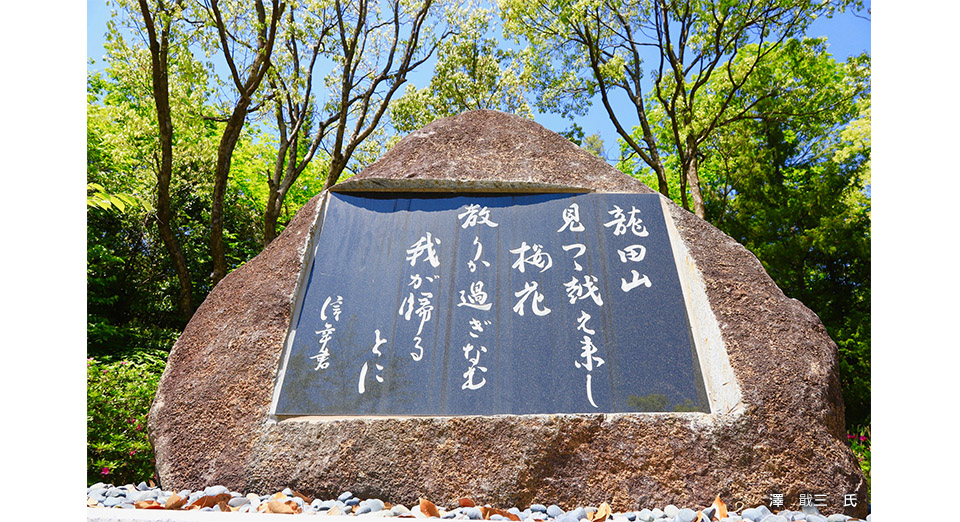 龍田山
見つゝ越え来し
桜花
散りか過ぎなむ
我が帰る
とに
信幸書
澤 戢三 氏